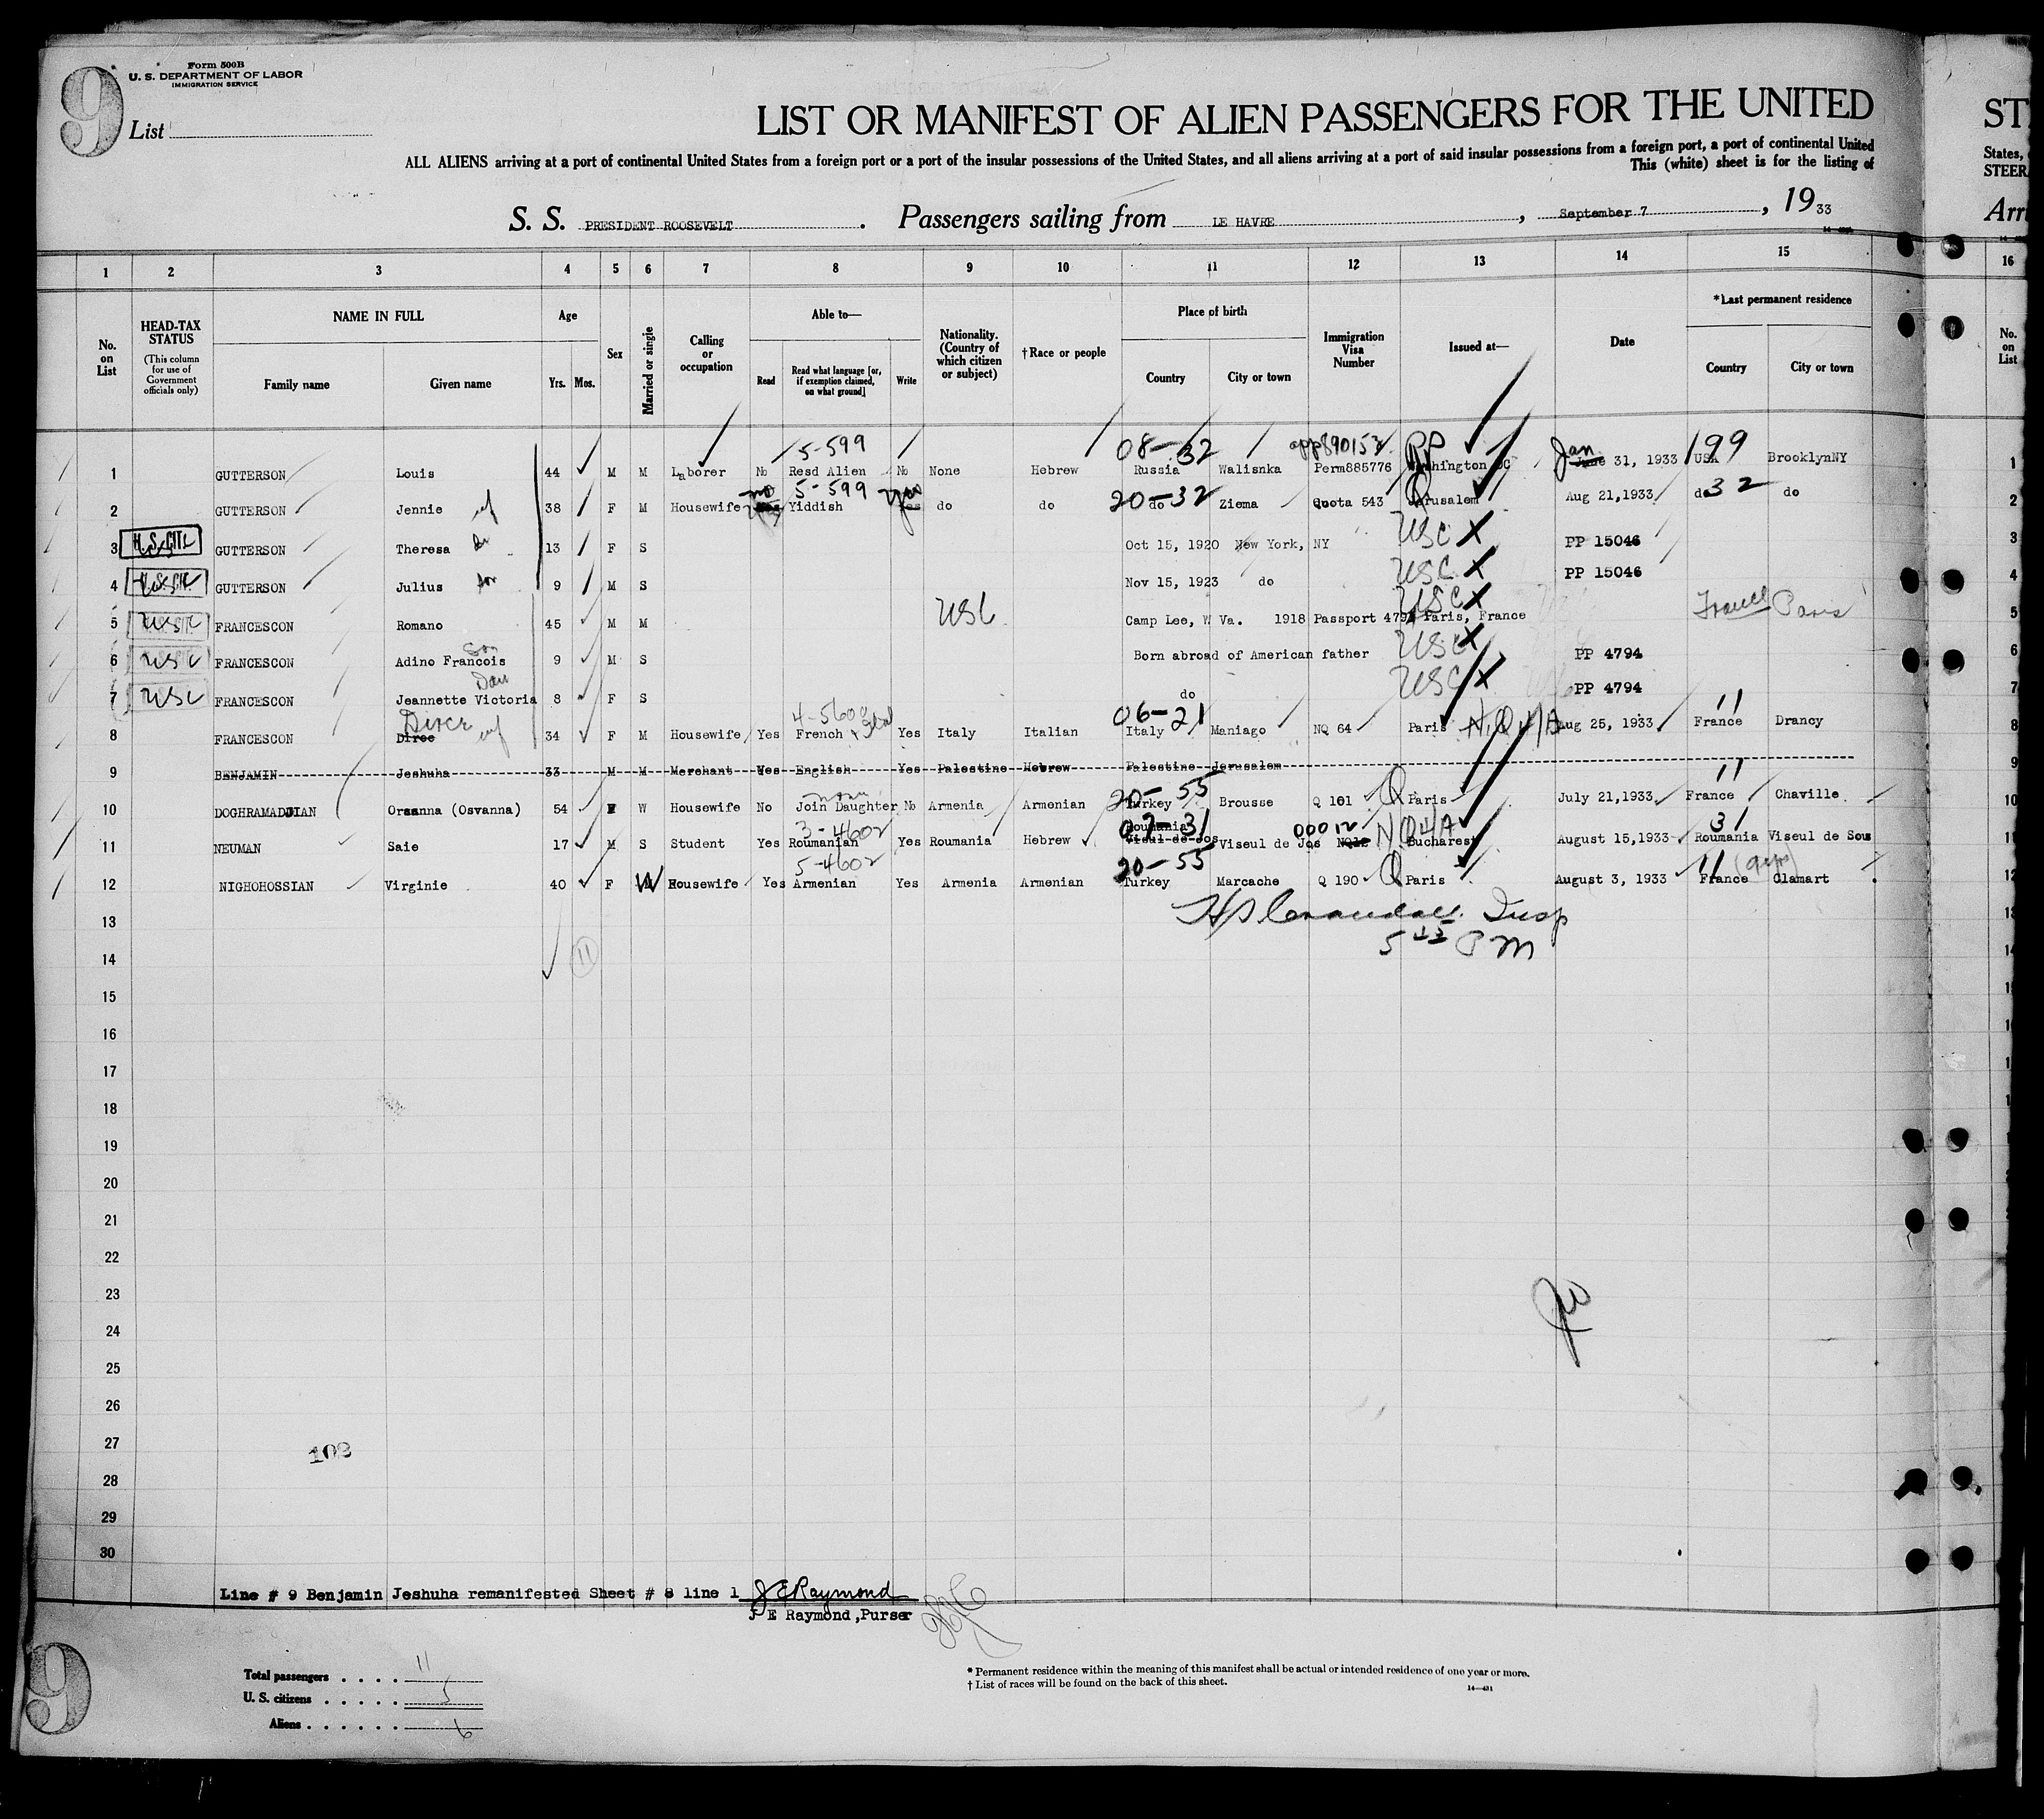 9
Form 500B
U. S. DEPARTMENT OF LABOR
IMMIGRATION SERVICE
List
LIST OR MANIFEST OF ALIEN PASSENGERS FOR THE UNITED
ST
ALL ALIENS arriving at a port of continental United States from a foreign port or a port of the insular possessions of the United States, and all aliens arriving at a port of said insular possessions from a foreign port, a port of continental United
States,
This (white) sheet is for the listing of
STEER
S. S. PRESIDENT ROOSEVELT. Passengers sailing from LE HAVRE, September 7, 19 33
Arr
1 2 3 4 5 6 7 8 9 10 11 12 13 14 15 16
No. on List
HEAD-TAX STATUS
(This column for use of Government officials only)
NAME IN FULL
Family name
Given name
Age
Yrs. Mos.
Sex
Married or single
Calling or occupation
Able to—
Read
Read what language [or, if exemption claimed, on what ground]
Write
Nationality. (Country of which citizen or subject)
†Race or people
Place of birth
Country
City or town
Immigration Visa Number
Issued at—
Date
*Last permanent residence
Country
City or town
No. on List
5-599 08-32 app890153 PP Jan 199
1 GUTTERSON Louis 44 M M Laborer No Resd Alien No None Hebrew Russia Walisnka Perm885776 Washington DC June 31, 1933 USA BrooklynNY 1
no 5-599 yes 20-32 Q 32
2 GUTTERSON Jennie wf 38 F M Housewife Yiddish Yes do do do Ziema Quota 543 Jerusalem Aug 21,1933 do do 2
3 GUTTERSON Theresa 13 F S Oct 15, 1920 New York, NY USC X PP 15046 3
4 GUTTERSON Julius 9 M S Nov 15, 1923 do USC X PP 15046 4
5 USC FRANCESCON Romano 45 M M USC Camp Lee, W Va. 1918 Passport 4794 Paris, France USC X France Paris 5
Son
6 USC FRANCESCON Adino Francois 9 M S Born abroad of American father USC X PP 4794 6
Dau
7 USC FRANCESCON Jeannette Victoria 8 F S do USC X PP 4794 7
Dirce 4-560 Ital 06-21 11
8 FRANCESCON Dirce wf 34 F M Housewife Yes French Yes Italy Italian Italy Maniago NQ 64 Paris NQ4A Aug 25, 1933 France Drancy 8
9 BENJAMIN Jeshuha 33 M M Merchant Yes English Yes Palestine Hebrew Palestine Jerusalem 9
none 20-55 11
10 DOGHRAMADJIAN Orsanna (Osvanna) 54 F W Housewife No Join Daughter No Armenia Armenian Turkey Brousse Q 161 Q Paris July 21,1933 France Chaville 10
3-4602 07-31 Roumania 00012 NQ4A 31
11 NEUMAN Saie 17 M S Student Yes Roumanian Yes Roumania Hebrew Viseul de Jos Viseul de Jos NQ12 Bucharest August 15,1933 Roumania Viseul de Sous 11
5-4602 20-55 11
12 NIGHOHOSSIAN Virginie 40 F W Housewife Yes Armenian Yes Armenia Armenian Turkey Marcache Q 190 Q Paris August 3, 1933 France Clamart 12
13 Crandall Insp 13
5 45 PM
14 11 14
15
16
17
18
19
20
21
22
23
24
25
26
27 108
28
29
30
Line # 9 Benjamin Jeshuha remanifested Sheet # 8 line 1 J E Raymond
J E Raymond,Purser
9
Total passengers . . . . 11
U. S. citizens . . . . . 5
Aliens . . . . . . 6
* Permanent residence within the meaning of this manifest shall be actual or intended residence of one year or more.
† List of races will be found on the back of this sheet.
14—431